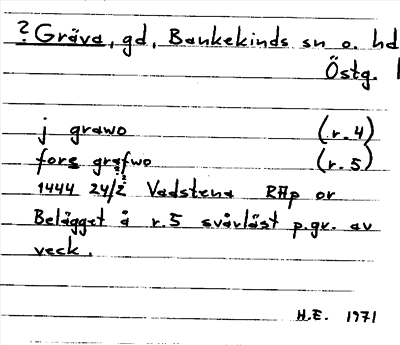 ? Gräva, gd, Bankekinds sn o. hd
Östg. l
j grawo (r. 4)
fors grafwo (r. 5)
1444 24/2 Vadstena RAp or
Belägget å r. 5 svårläst p.gr. av
veck.
H.E. 1971